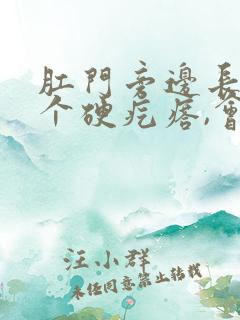 肛門旁邊長
个硬疙瘩,會
汪小群
未经同意禁止转载